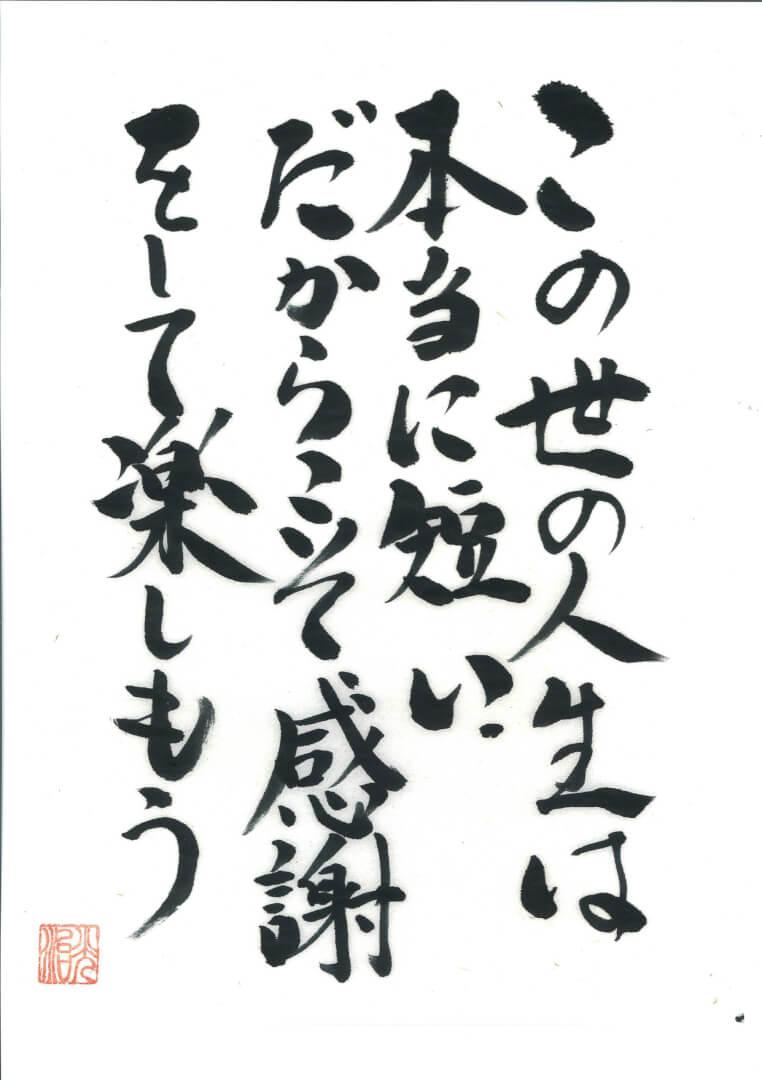 この世の人生は
本当に短い
だからこそ感謝
をして楽しもう